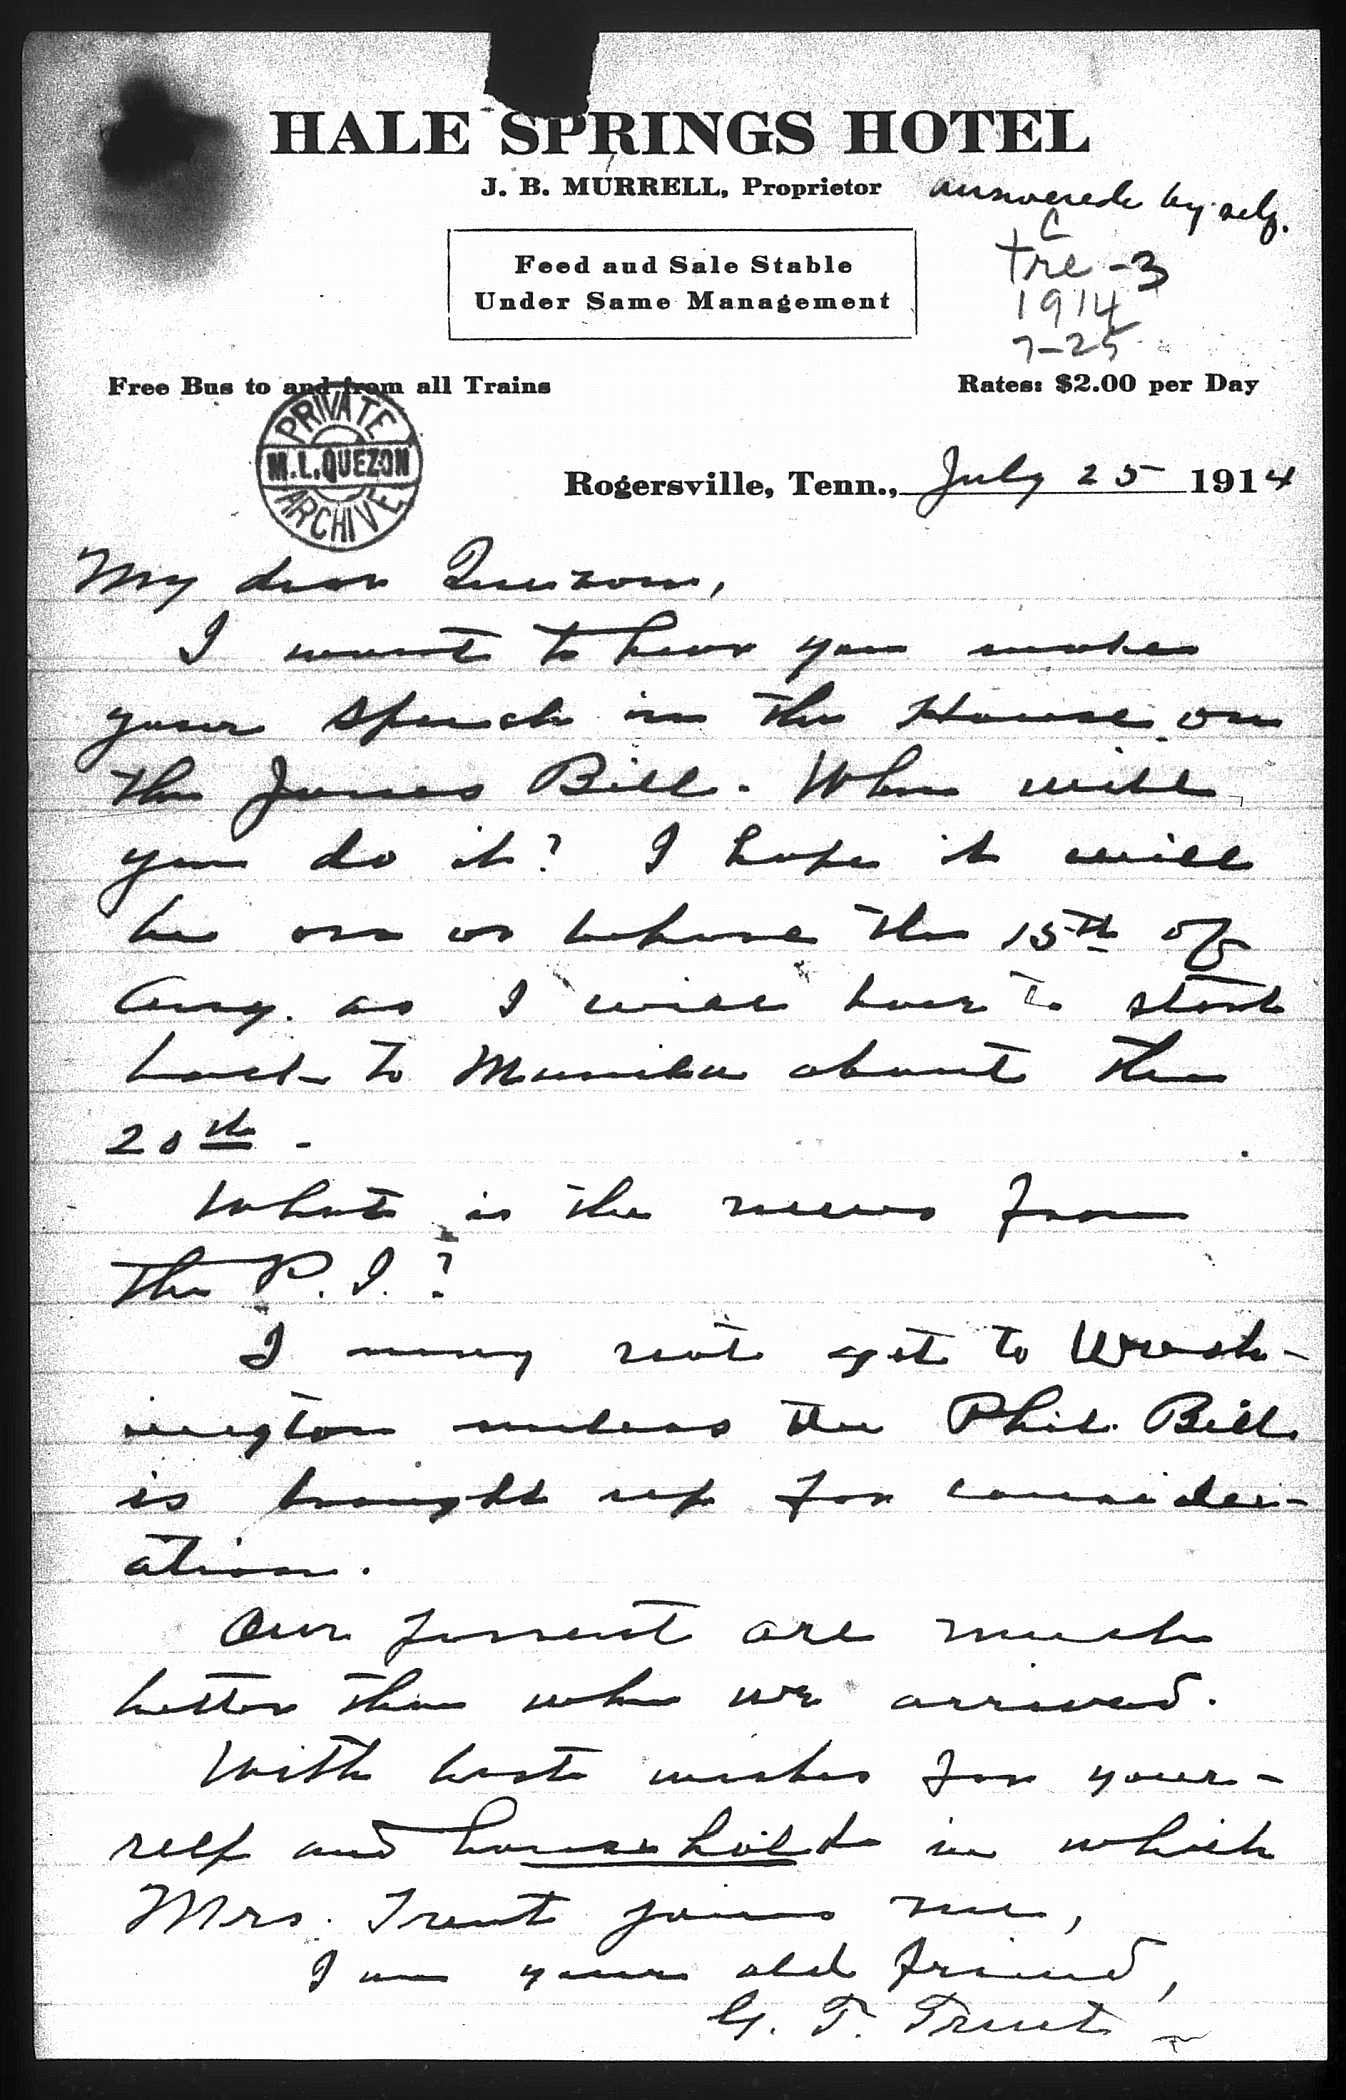 HALE SPRINGS HOTEL
J. B. MURRELL, Proprietor
answered by self.
Feed and Sale Stable
Under Same Management
C
tre-3
1914
7-25
Free Bus to and from all Trains
Rates: $2.00 per Day
PRIVATE
M.L.QUEZON
ARCHIVE
Rogersville, Tenn., July 25 1914
My dear Quezon,
I want to hear you make
your speech in the House on
the Jones Bill. When will
you do it? I hope it will
be on or before the 15th of
Aug. as I will have to start
back to Manila about the
20th -
What is the news from
the P. I.?
I may not get to Wash-
ington unless the Phil. Bill
is brought up for consider-
ation.
Our are much
better than when we arrived.
With best wishes for your-
self and household in which
Mrs. Trent joins me,
I am your old friend,
G. T. Trent